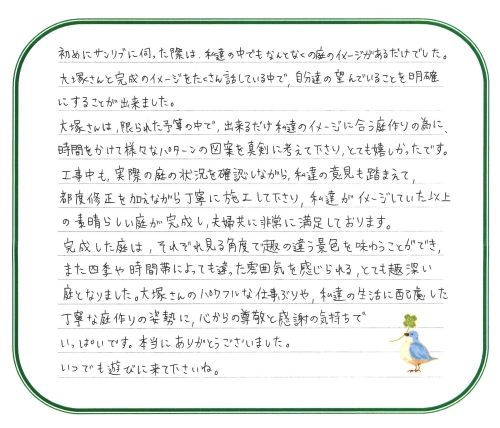 初めにサンリブに伺った際は、私達の中でもなんとなくの庭のイメージがあるだけでした。
大塚さんと完成のイメージをたくさん話している中で、自分達の望んでいることを明確
にすることが出来ました。
大塚さんは、限られた予算の中で、出来るだけ私達のイメージに合う庭作りの為に、
時間をかけて様々なパターンの図案を真剣に考えて下さり、とても嬉しかったです。
工事中も、実際の庭の状況を確認しながら、私達の意見も踏まえて、
都度修正を加えながら丁寧に施工して下さり、私達がイメージしていた以上
の素晴らしい庭が完成し、夫婦共に非常に満足しております。
完成した庭は、それぞれ見る角度で趣の違う景色を味わうことができ、
また四季や時間帯によっても違った雰囲気を感じられる、とても趣深い
庭となりました。大塚さんのパワフルな仕事ぶりや、私達の生活に配慮した
丁寧な庭作りの姿勢に、心からの尊敬と感謝の気持ちで
いっぱいです。本当にありがとうございました。
いつでも遊びに来て下さいね。